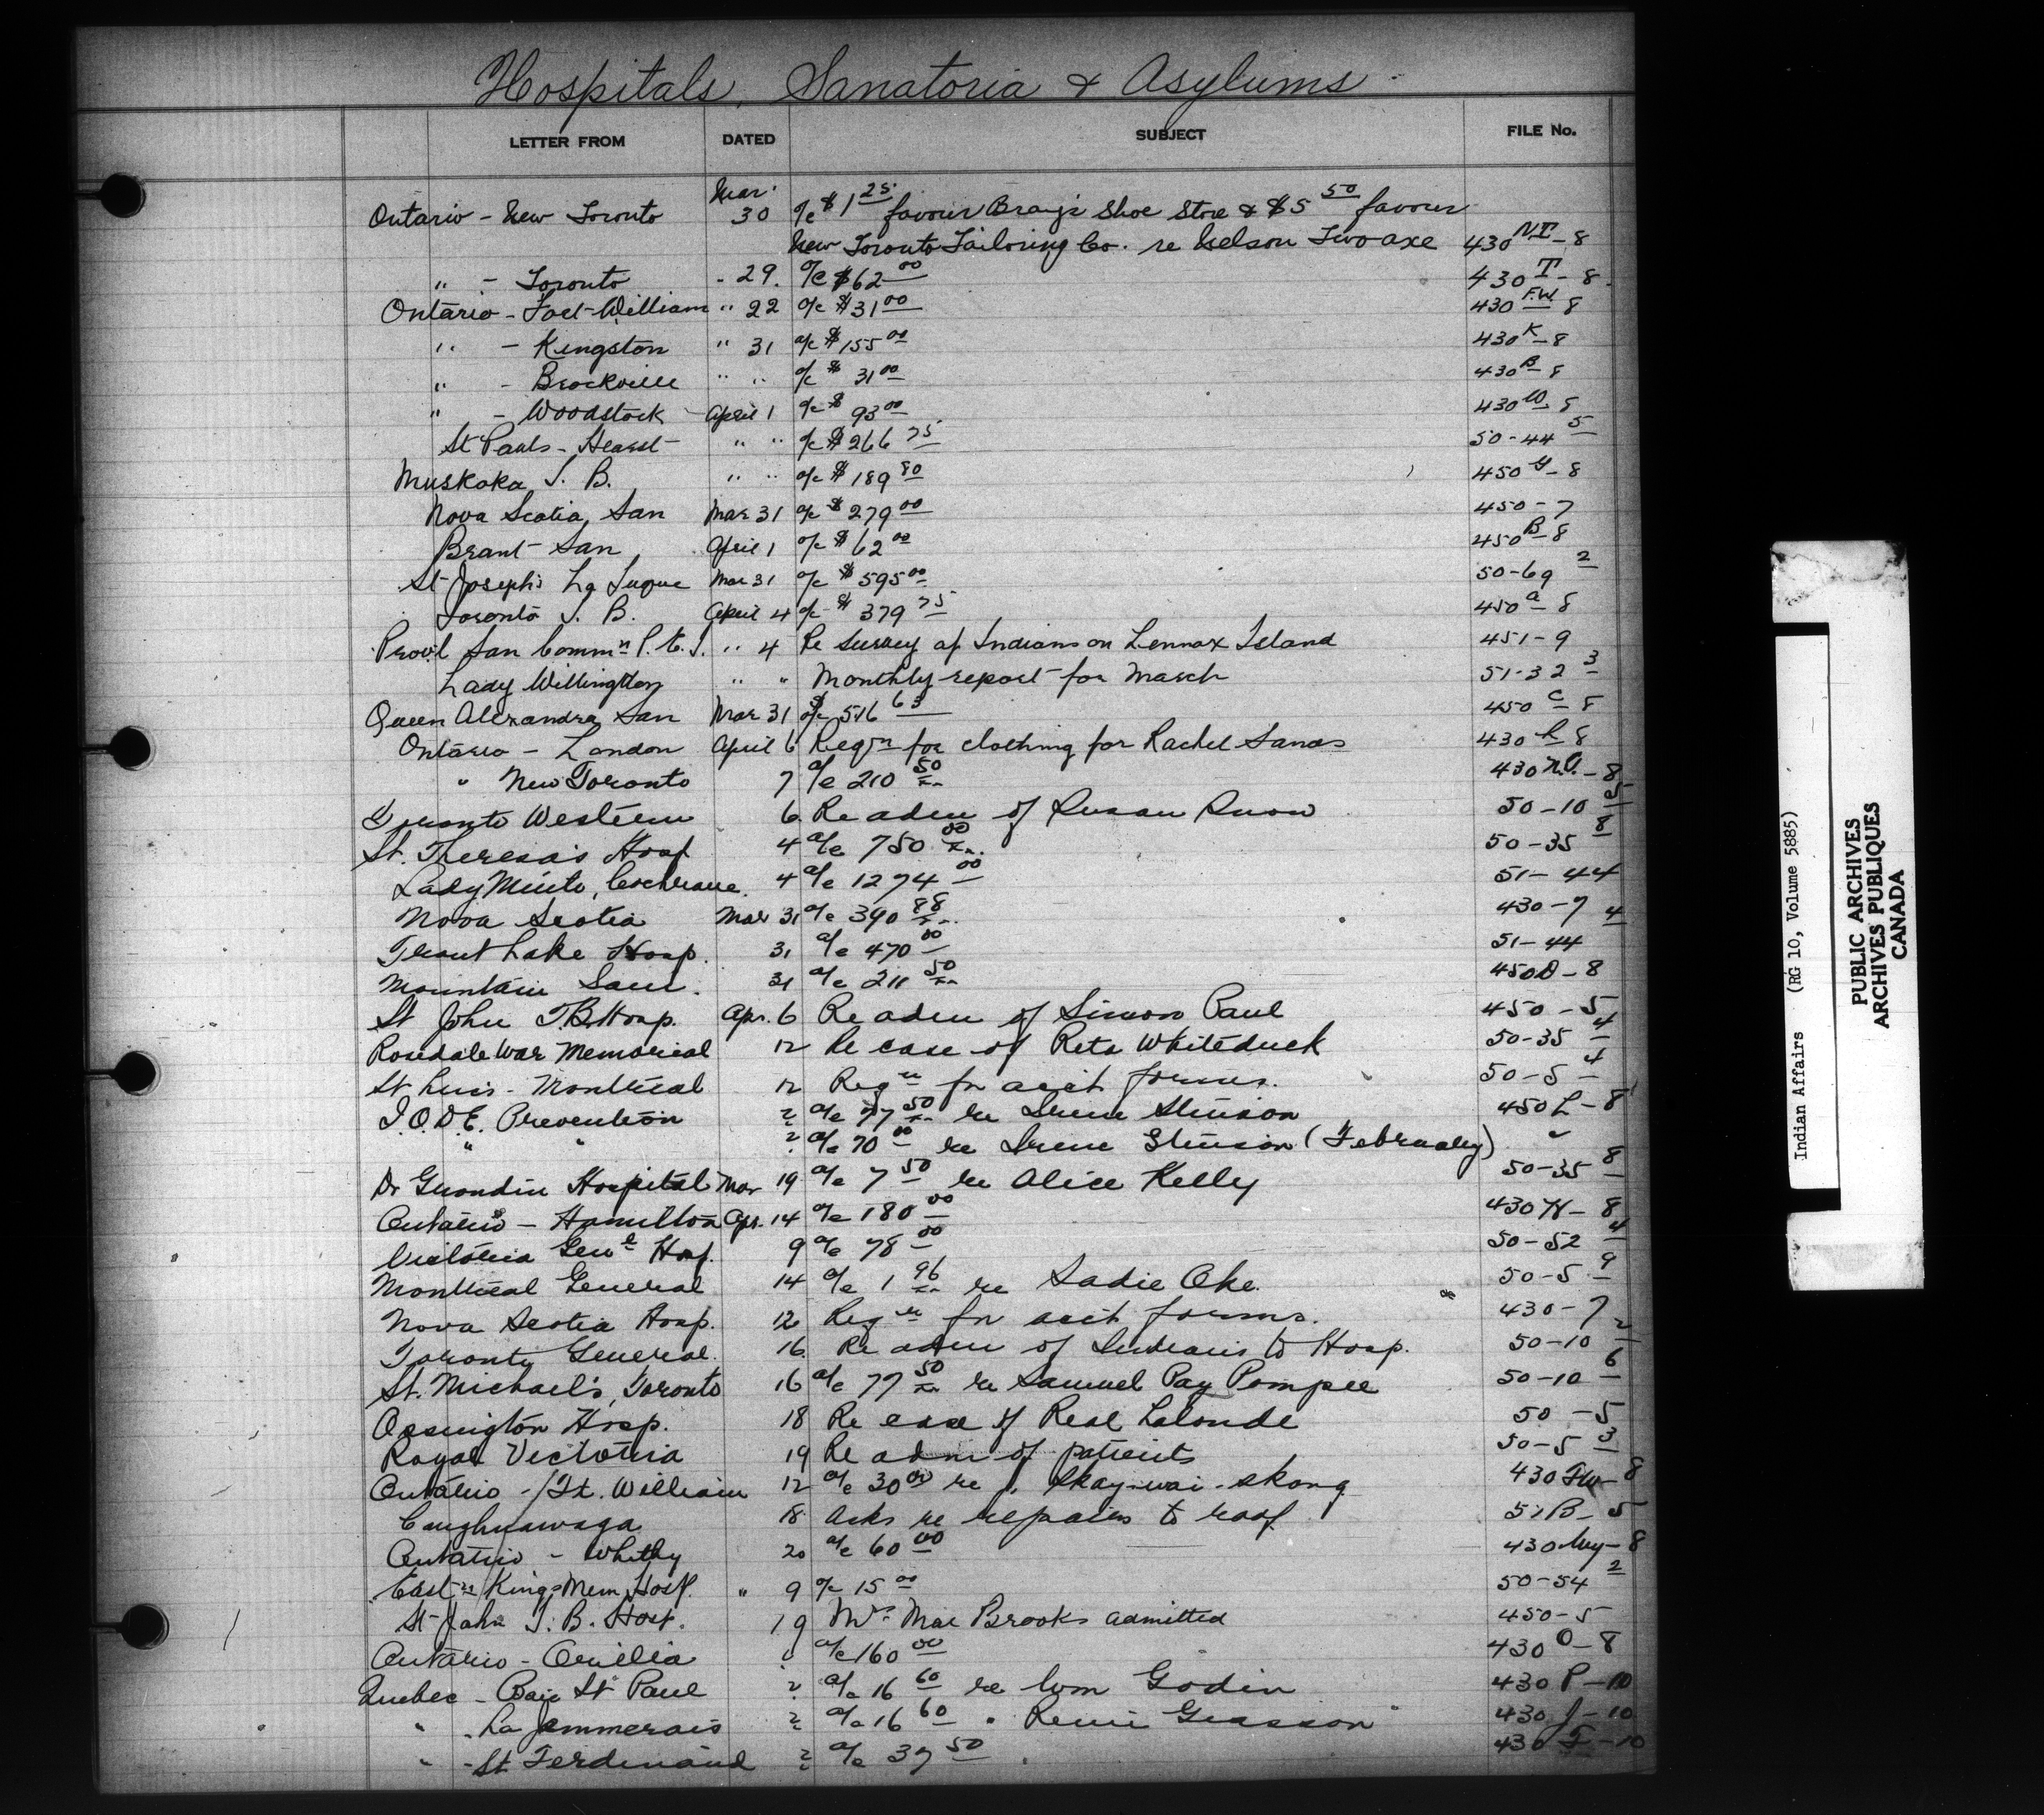 Hospitals, Sanatoria & Asylums
LETTER FROM DATED SUBJECT FILE No.
Mar.
Ontario - New Toronto 30 a/c $1 25 favour Bray's Shoe Store & $5 50 favour
New Toronto Tailoring Co. re Nelson Two axe 430 N.T. - 8
" - Toronto - 29. a/c $62 00 430 T - 8
Ontario - Fort William " 22 a/c $31 00 430 F.W. 8
" - Kingston " 31 a/c $155 00 430 K - 8
" - Brockville " " a/c $ 31 00 430 B - 8
" - Woodstock - April 1 a/c $ 93 00 430 W. 8
St Pauls - Hearst " " a/c $266 75 50-44 5
Muskoka T. B. " " a/c $189 80 450 G - 8
Nova Scotia San Mar 31 a/c $279 00 450 - 7
Brant San April 1 a/c $62 00 450 B - 8
St Joseph's La Tuque Mar 31 a/c $595 00 50-69 2
Toronto T. B. April 4 a/c $ 379 75 450 a - 8
Prov'l San Comm n P. E. I. " 4 Re Survey of Indians on Lennox Island 451-9
Lady Willingdon " " Monthly report for March 51-32 3
Queen Alexandra San Mar 31 a/c $516 63 450 C - 8
Ontario - London April 6 Reqn for clothing for Rachel Sands 430 L 8
" New Toronto 7 a/c 210 50 430 N.T. - 8
Toronto Western 6. Re adm of Susan Snow 50-10 5
St. Theresa's Hosp 4 a/c 750 00 50-35 8
Lady Minto, Cochrane. 4 a/c 1274 00 51-44
Nova Scotia Mar 31 a/c 390 88 430-7 4
Trout Lake Hosp. 31 a/c 470 00 51-44
Mountain San. 31 a/c 211 50 450D - 8
St John T.B. Hosp. Apr. 6 Re adm of Simon Paul 450 - 5
Rosedale War Memorial 12 Re case of Reta Whiteduck 50-35 4
St Lucs - Montreal 12 Reqn for acct forms. 50-5 4
I.O.D.E. Prevention 2 a/c 77 50 re Irene Stinson 450 L - 8
" " 2 a/c 70 00 re Irene Stinson (February) "
Dr Grondin Hospital Mar 19 a/c 7 50 re Alice Kelly 50-35 8
Ontario - Hamilton Apr. 14 a/c 180 00 430 H - 8
Victoria Gen l Hosp. 9 a/c 78 00 50-52 4
Montreal General 14 a/c 1 96 re Sadie Oke. 50-5 9
Nova Scotia Hosp. 12 Reqn for acct forms. 430-7
Toronto General. 16. Re adm of Indians to Hosp. 50-10 2
St. Michael's, Toronto 16 a/c 77 50 re Samuel Pay Pompee 50-10 6
Ossington Hosp. 18 Re case of Real Lalonde 50-5
Royal Victoria 19 Re adm of patients 50-5 3
Ontario - Ft. William 12 a/c 30 00 re 430 Fw - 8
Caughnawaga 18 Asks re repairs to roof. 51 B - 5
Ontario - Whitby 20 a/c 60 00 430 Wy - 8
East n Kings Mem. Hosp. " 9 a/c 15 00 50-54 2
St John T. B. Hosp. 19 Mrs Mae Brooks admitted 450-5
Ontario - Orillia a/c 160 00 430 O - 8
Quebec - Baie St Paul 2 a/c 16 60 re Wm Godin 430 P - 10
" - La Jemmerais 2 a/c 16 60 " Remi Grasson 430 J - 10
" - St Ferdinand 2 a/c 37 50 430 F - 10
Indian Affairs (RG 10, Volume 5885)
PUBLIC ARCHIVES
ARCHIVES PUBLIQUES
CANADA